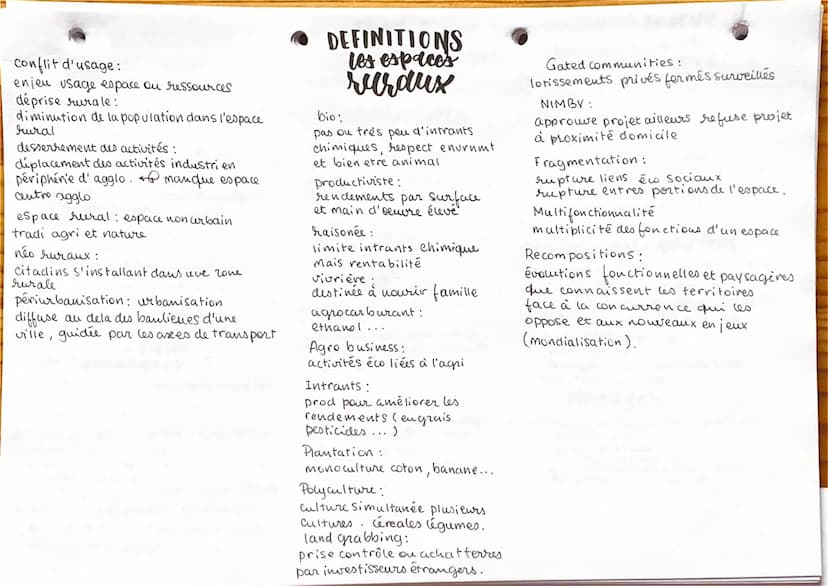 DEFINITIONS
les espaces
ruraux
conflit d'usage :
enjeu usage espace ou ressources
déprise rurale :
diminution de la population dans l'espace
rural
desserrement des activités :
déplacement des activités industri en
périphérie d'agglo. manque espace
autre agglo
espace rural : espace non urbain
tradi agri et nature
néo ruraux :
citadins s'installant dans une zone
rurale
périurbanisation : urbanisation
diffuse au dela des banlieues d'une
ville, guidée par les axes de transport
bio :
pas ou très peu d'intrants
chimiques, respect envrnmt
et bien etre animal
productiviste :
rendements par surface
et main d'oeuvre élevé
raisonée :
limite intrants chimique
mais rentabilité
vivrière :
destinée à nourir famille
agrocarburant :
ethanol ...
Agro business :
activités éco liées à l'agri
Intrants :
prod pour améliorer les
rendements (engrais
pesticides ...)
Plantation :
monoculture coton, banane...
Polyculture :
culture simultanée plusieurs
cultures. céreales légumes.
land grabbing :
prise contrôle ou achat terres
par investisseurs étrangers.
Gated communities :
lotissements privés fermés surveillés
NIMBY :
approuve projet ailleurs refuse projet
à proximité domicile
Fragmentation :
rupture liens éco sociaux
rupture entres portions de l'espace.
Multifonctionnalité
multiplicité des fonctions d'un espace
Recompositions :
évolutions fonctionnelles et paysagères
que connaissent les territoires
face à la concurrence qui les
oppose et aux nouveaux enjeux
(mondialisation).